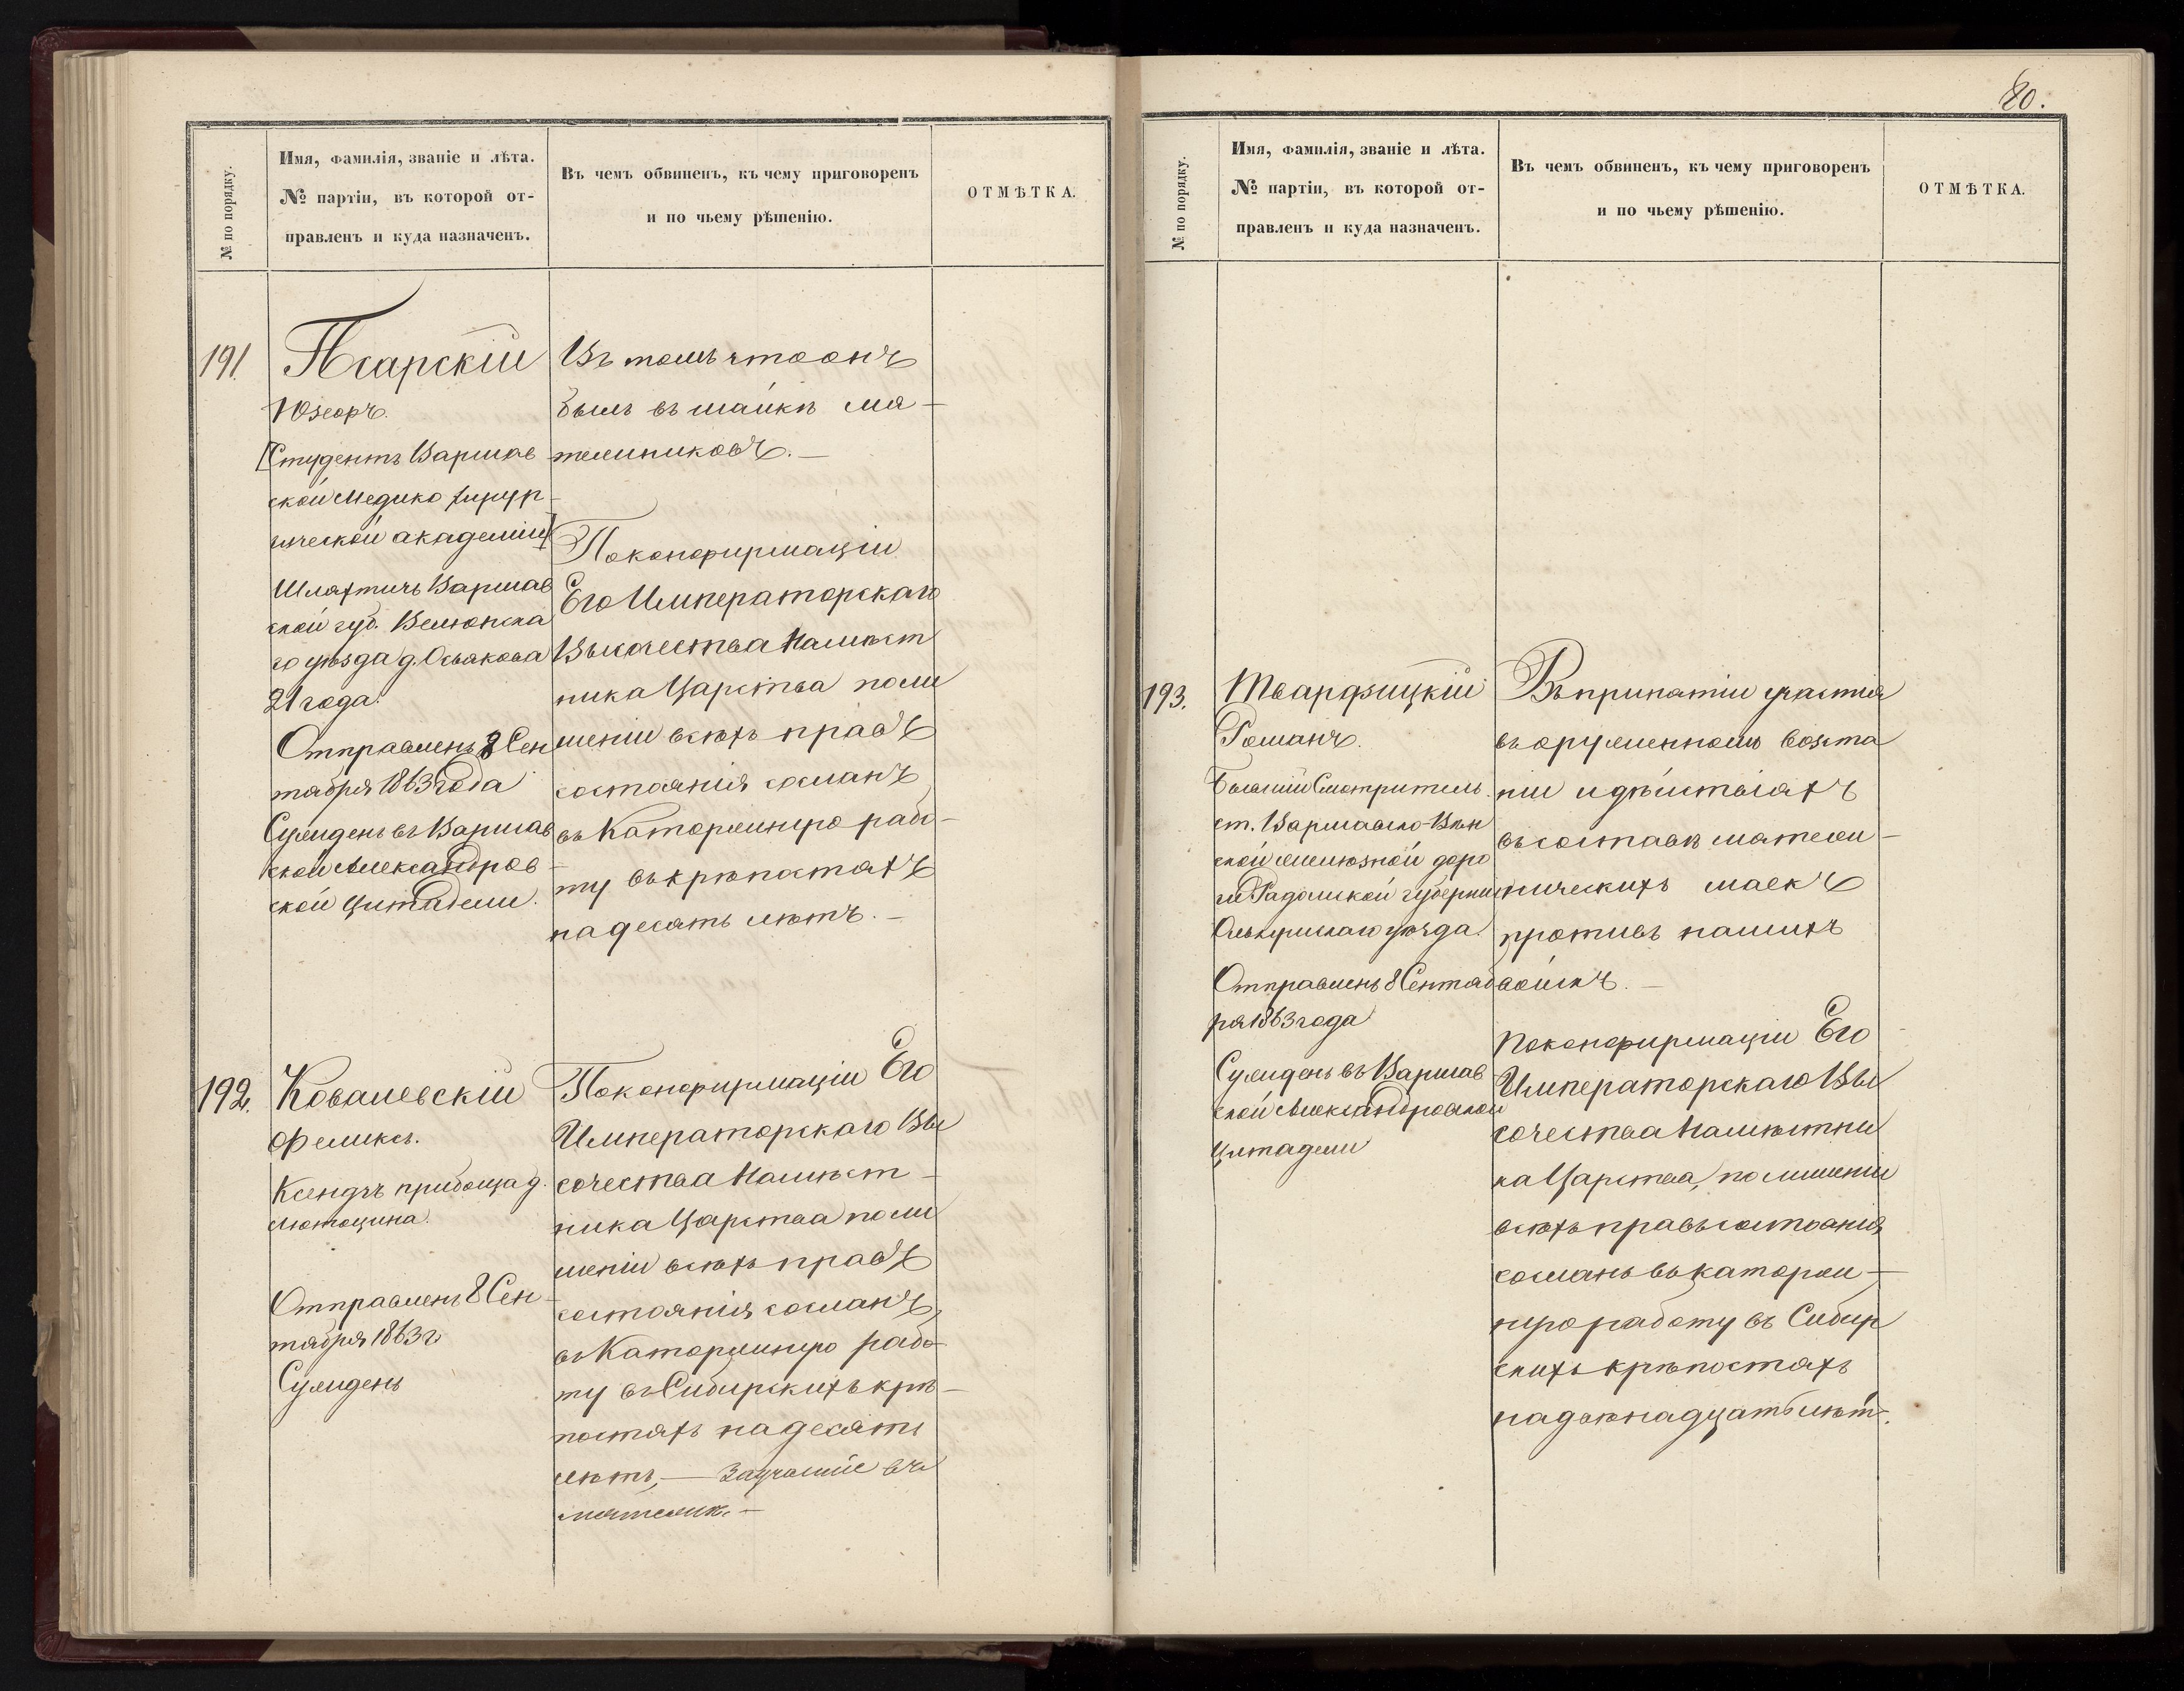 80.
№ по порядку.
Имя, фамилія, званіе и лѣта.
№ партіи, въ которой от-
правленъ и куда назначенъ.
Въ чемъ обвиненъ, къ чему приговоренъ
и по чьему рѣшенію.
ОТМѢТКА.
191.
Псарскій
Юзефъ.
[Студентъ Варшав
ской Медико Хирур-
гической академіи]
Шляхтичъ Варшав
ской губ. Велюнска
го уѣзда д. Осьякова
21 года.
Отправленъ 8 Сен
тября 1863 года
Сужденъ въ Варшав
ской Александров-
ской Цитадели.
Въ томъ что онъ
былъ въ шайкѣ мя-
тежниковъ.—
По конфирмаціи
Его Императорскаго
Высочества Намѣст
ника Царства по ли
шеніи всѣхъ правъ
состоянія сосланъ
въ Каторжную рабо-
ту въ крѣпостяхъ
на десять лѣтъ.—
192.
Ковалевскій
Феликсъ.
Ксендзъ прибоща д.
Лютоцина.
Отправленъ 8 Сен-
тября 1863 г.
Сужденъ
По конфирмаціи Его
Императорскаго Вы
сочества Намѣст-
ника Царства по ли
шеніи всѣхъ правъ
состоянія сосланъ,
въ Каторжную рабо-
ту въ Сибирскихъ крѣ-
постяхъ на десять
лѣтъ,— За участіе въ
мятежѣ.—
№ по порядку.
Имя, фамилія, званіе и лѣта.
№ партіи, въ которой от-
правленъ и куда назначенъ.
Въ чемъ обвиненъ, къ чему приговоренъ
и по чьему рѣшенію.
ОТМѢТКА.
193.
Твардзицкій
Романъ.
Бывшій Смотритель
ст. Варшавско-Вѣн
ской желѣзной доро
ги Радомской губерніи
Олькушскаго уѣзда.
Отправленъ 8 Сентяб
ря 1863 года
Сужденъ въ Варшав
ской Александровской
Цитадели
Въ принятіи участія
въ оруженномъ возста
ніи и дѣйствіяхъ
въ составѣ мятеж-
ническихъ шаекъ
противъ нашихъ
войскъ.—
По конфирмаціи Его
Императорскаго Вы
сочества Намѣстни
ка Царства, по лишеніи
всѣхъ правъ состоянія
сосланъ въ каторж-
ную работу въ Сибир
скихъ крѣпостяхъ
на двѣнадцать лѣтъ.